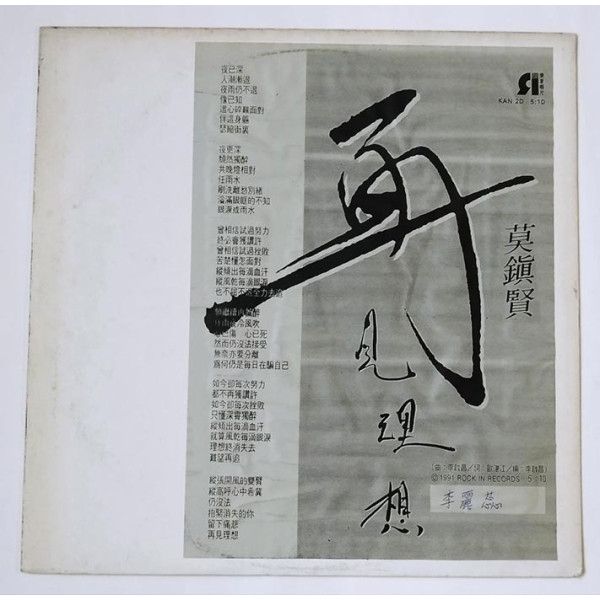 夜已深
人漸漸退
夜雨仍不退
像已知
這心碎難面對
伴這身軀
琴暗街裏
夜更深
頹然獨醉
共晚燈相對
任雨水
刷洗離愁別緒
溢滿眼眶的不知
眼淚或雨水
曾相信試過努力
終必會獲讚許
曾相信試過挫敗
苦楚懂怎面對
縱傾出每滴血汗
縱風乾每滴眼淚
也不
全力去追
心已死
然而仍沒法接受
無奈亦要分離
為何仍是每日在騙自己
如今卻每次努力
都不再獲讚許
如今卻每次挫敗
只懂深宵獨醉
縱傾出每滴血汗
就算風乾每滴眼淚
理想終消失去
難望再追
縱張開風的雙臂
縱高呼心中希冀
仍沒法
抱緊消失的你
留下痛悲
再見理想
KAN 2D 5:10
再見理想
莫鎮賢
1991 ROCK IN RECORDS 5:10
李麗